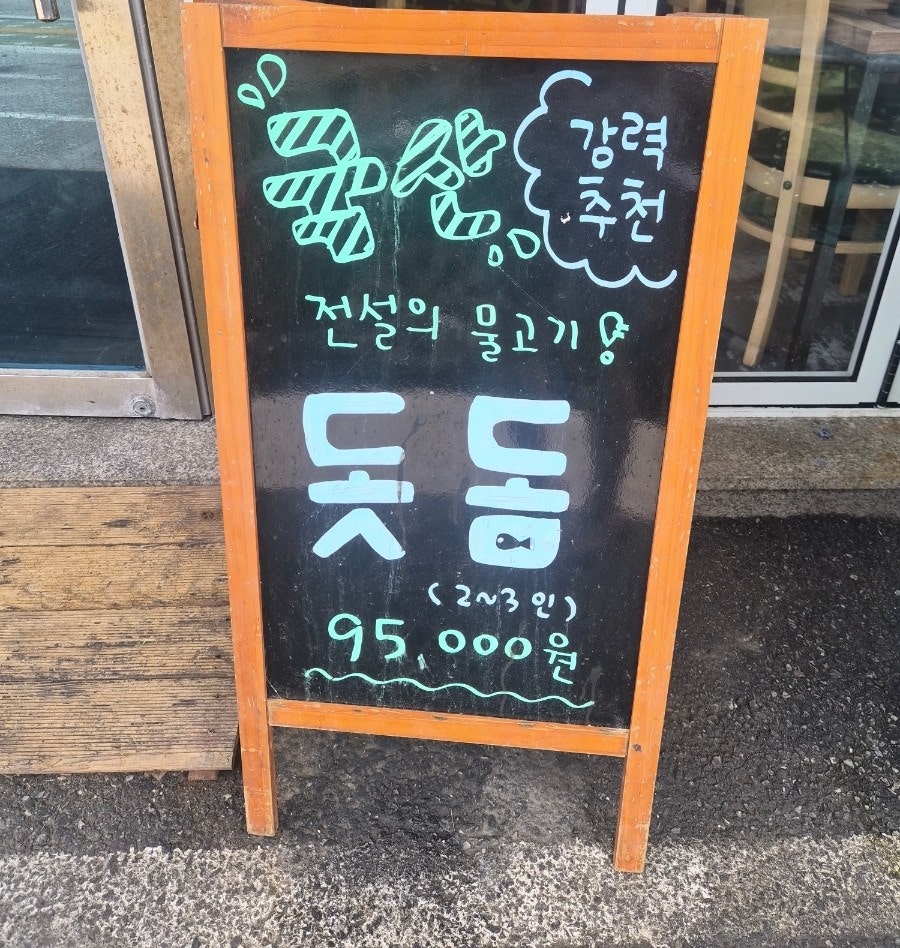 국산
강력
추천
전설의 물고기!
돗돔
(2~3인)
95,000원